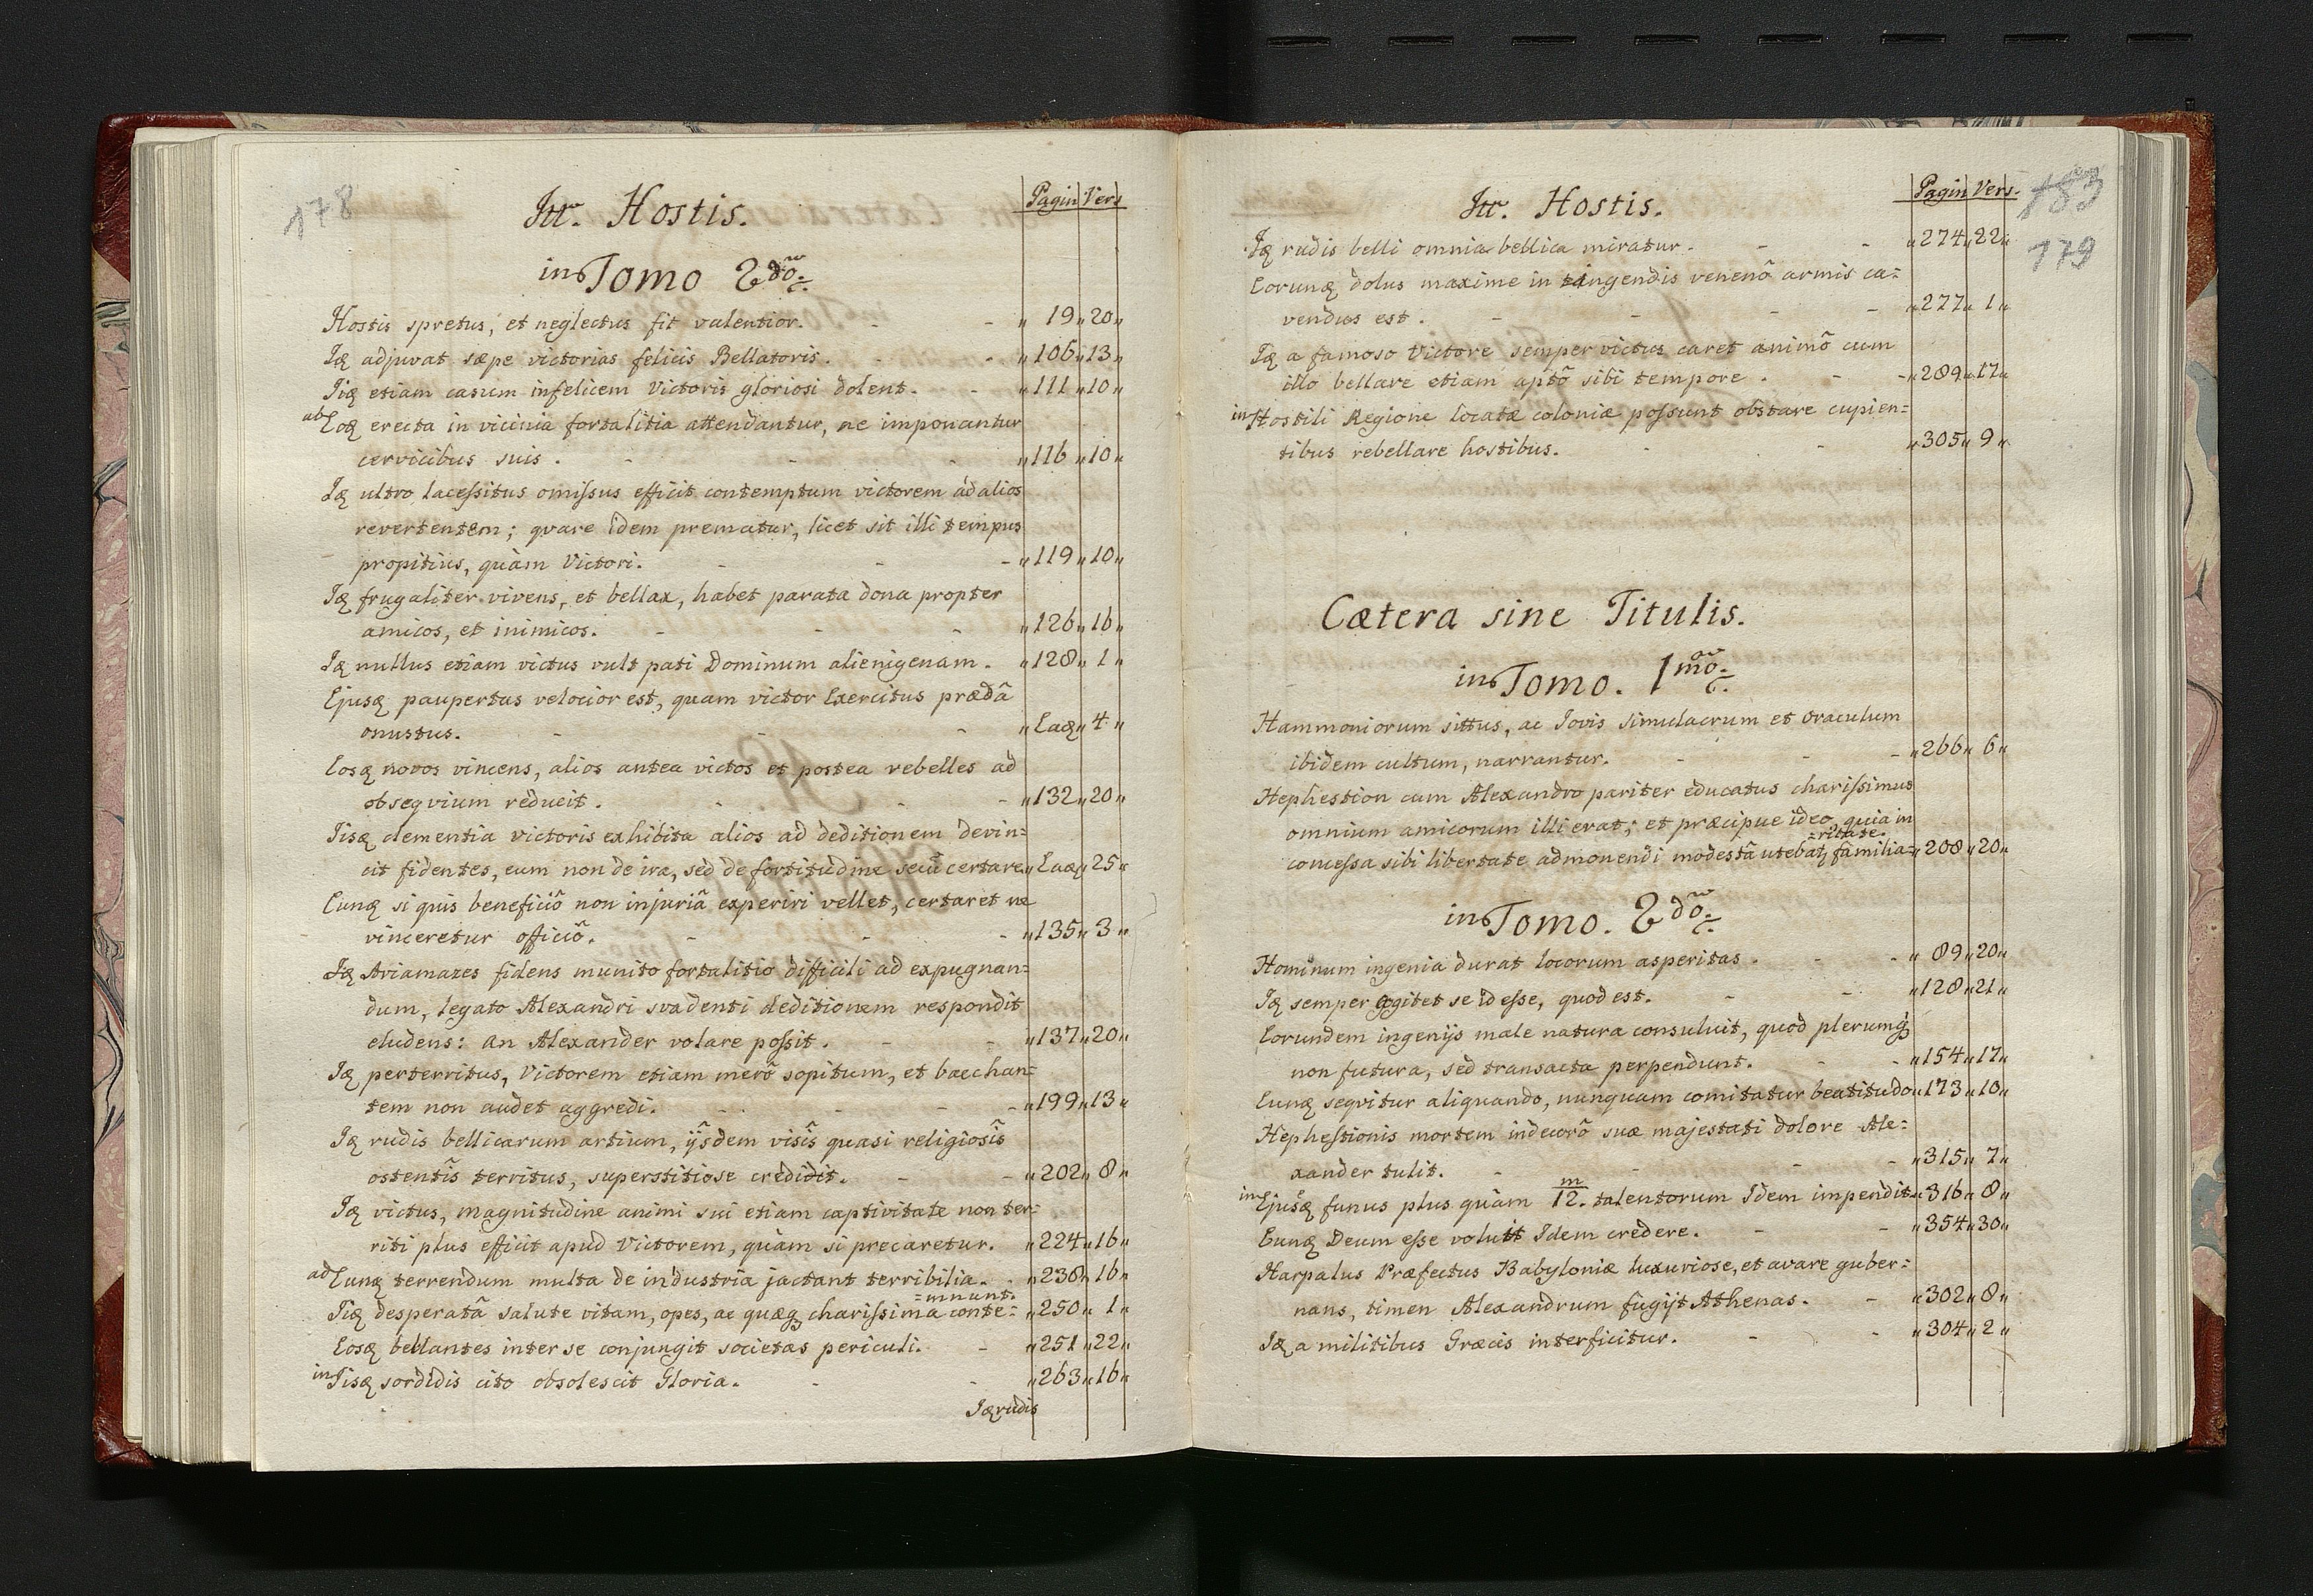 178
Itt. Hostis.
Pagin Vers
in Tomo 2dō.
Hostis spretus, et neglectus fit valentior. - - " 19 " 20 "
Iꝗ adjuvat sæpe victorias felicis Bellatoris. - - " 106 " 13 "
Iiꝗ etiam casum infelicem Victoris gloriosi dolent. - " 111 " 10 "
ab Eoꝗ erecta in vicinia fortalitia attendantur, ne imponantur
cervicibus suis. - - - " 116 " 10 "
Iꝗ ultro lacessitus omissus efficit contemptum victorem ad alios
revertentem; qvare idem prematur, licet sit illi tempus
propitius, quàm Victori. - - - " 119 " 10 "
Iꝗ frugaliter vivens, et bellax, habet parata dona propter
amicos, et inimicos. - - - " 126 " 16 "
Iꝗ nullus etiam victus vult pati Dominum alienigenam. " 128 " 1 "
Ejusꝗ paupertas velocior est, quam victor Exercitus prædâ
onustus. - - - " Eaꝗ " 4 "
Eosꝗ novos vincens, alios antea victos et postea rebelles ad
obseqvium reducit. - - - " 132 " 20 "
Iisꝗ clementia victoris exhibita alios ad deditionem devin=
cit fidentes, eum non de ira, sed de fortitudine secū certare " Eaꝗ " 25 "
Eunꝗ si quis beneficiô non injuriâ experiri vellet, certaret ne
vinceretur officiô. - - - " 135 " 3 "
Iꝗ Ariamazes fidens munito fortalitio difficili ad expugnan=
dum, legato Alexandri svadenti deditionem respondit
eludens: an Alexander volare possit. - - " 137 " 20 "
Iꝗ perterritus, Victorem etiam merô sopitum, et bacchan=
tem non audet aggredi. - - - " 199 " 13 "
Iꝗ rudis bellicarum artium, ijsdem visîs quasi religiosîs
ostentîs territus, superstitiose credidit. - - " 202 " 8 "
Iꝗ victus, magnitudine animi sui etiam captivitate non ter=
riti plus efficit apud Victorem, quàm si precaretur. " 224 " 16 "
ad Eunꝗ terrendum multa de industria jactant terribilia. " 238 " 16 "
=mnunt.
Iiꝗ desperatâ salute vitam, opes, ac quæꝗ charissima conte= " 250 " 1 "
Eosꝗ bellantes inter se conjungit societas periculi. - " 251 " 22 "
in Iisꝗ sordidis cito obsolescit Gloria. - - " 263 " 16 "
Iꝗ rudis
Itt. Hostis.
Pagin Vers.
183
179
Iꝗ rudis belli omnia bellica miratur. - - " 274 " 22 "
Eorunꝗ dolus maxime in tingendis venenô armis ca=
vendus est. - - - " 277 " 1 "
Iꝗ a famoso Victore semper victus caret animô cum
illo bellare etiam aptô sibi tempore. - - " 289 " 17 "
in Hostili Regione locatæ coloniæ possunt obstare cupien=
tibus rebellare hostibus. - - " 305 " 9 "
Cætera sine Titulis.
in Tomo. 1mō.
Hammoniorum sittus, ac Jovis simulacrum et oraculum
ibidem cultum, narrantur. - - - " 266 " 6 "
Hephestion cum Alexandro pariter educatus charissimus
omnium amicorum illi erat; et præcipue ideo, quia in
=ritate.
concessa sibi libertate admonendi modestâ utebatꝫ familia= " 208 " 20 "
in Tomo. 2dō.
Hominum ingenia durat locorum asperitas. - - " 89 " 20 "
Iꝗ semper cogitet se id esse, quod est. - - " 128 " 21 "
Eorundem ingenijs male natura consuluit, quod plerumq́
non futura, sed transacta perpendunt. - - " 154 " 17 "
Eunꝗ seqvitur aliquando, nunquam comitatur beatitudo " 173 " 10 "
Hephestionis mortem indecorô suæ majestati dolore Ale=
xander tulit. - - - " 315 " 7 "
in Ejusꝗ funus plus quàm m/12. talentorum Idem impendit " 316 " 8 "
Eunꝗ Deum esse voluit Idem credere. - - " 354 " 30 "
Harpalus Præfectus Babyloniæ luxuriose, et avare guber=
nans, timen Alexandrum fugijt Athenas. - " 302 " 8 "
Iꝗ a militibus Græcis interficitur. - - " 304 " 2 "